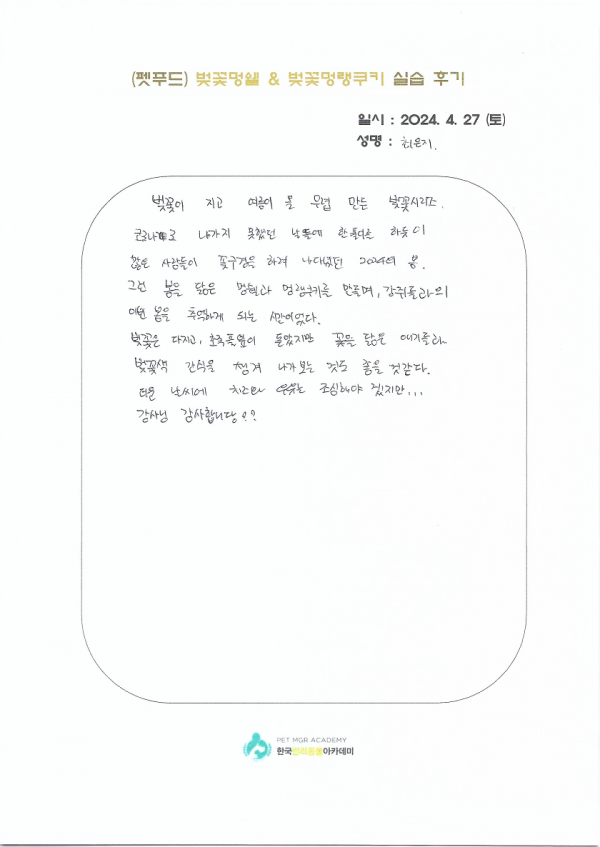 (펫푸드) 벚꽃멍쉘 & 벚꽃멍랭쿠키 실습 후기
일시 : 2024. 4. 27 (토)
성명 : 최은지.
벚꽃이 지고 여름이 올 무렵 만든 벚꽃시리즈.
코로나로 나가지 못했던 날들에 한풀이를 하듯이
많은 사람들이 꽃구경을 하려 나다녔던 2024의 봄.
그런 봄을 닮은 멍쉘과 멍랭쿠키를 만들며, 강쥐들과의
이번 봄을 추억하게 되는 시간이었다.
벚꽃은 다지고, 초록풀잎이 돋았지만 꽃을 닮은 애기들과
벚꽃색 간식을 챙겨 나가보는 것도 좋을 것같다.
더운 날씨에 치즈와 우유는 조심해야 겠지만...
강사님 감사합니당??
PET MGR ACADEMY
한국반려동물아카데미